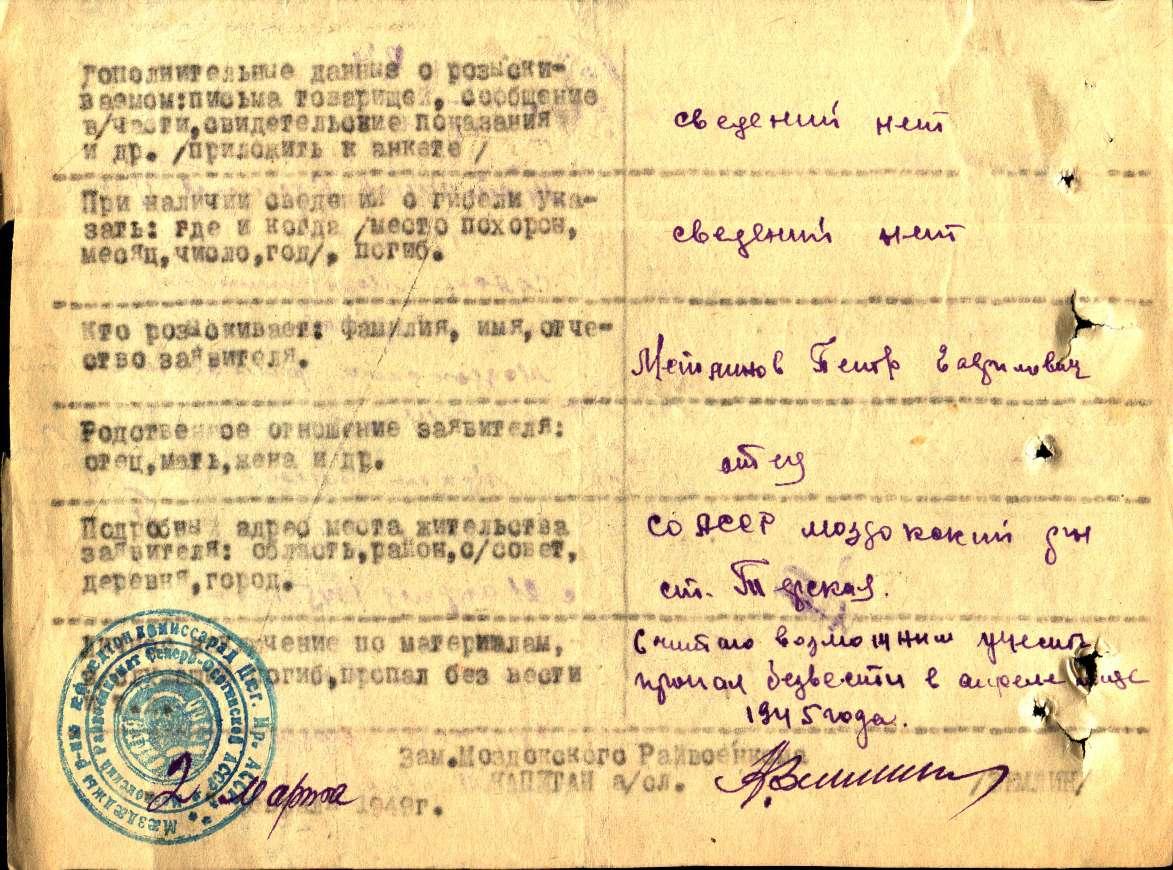 Дополнительные данные о розыски-
ваемом:письма товарищей, сообщение
в/части,свидетельские показания
и др. /приложить к анкете/
сведений нет
При наличии сведений о гибели ука-
зать: где и когда /место похорон,
месяц,число,год/, погиб.
сведений нет
Кто розыскивает: фамилия, имя,отче-
ство заявителя.
Петр Гаврилович
Родственное отношение заявителя:
отец,мать,жена и др.
отец
Подробный адрес места жительства
заявителя: область,район,с/совет,
деревня,город.
СО АССР Моздокский р-н
ст. Терская.
чение по материалам,
погиб,пропал без вести
Считаю возможним учесть
пропал безвести в апреле м-це
1945 года.
Зам.Моздокского Райвоенкома
КАПИТАН а/сл.
2 марта 1949г.